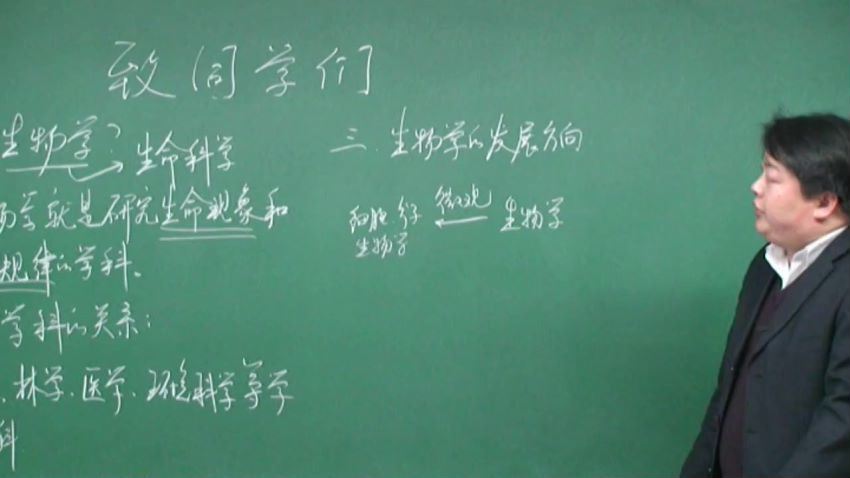 致同学们
生物学?
生命科学
物学就是研究生命现象和
规律的学科。
学科的关系:
、林学、医学、环境科学等学
科
三. 生物学的发展方向
细胞 分子 微观 生物学
生物学